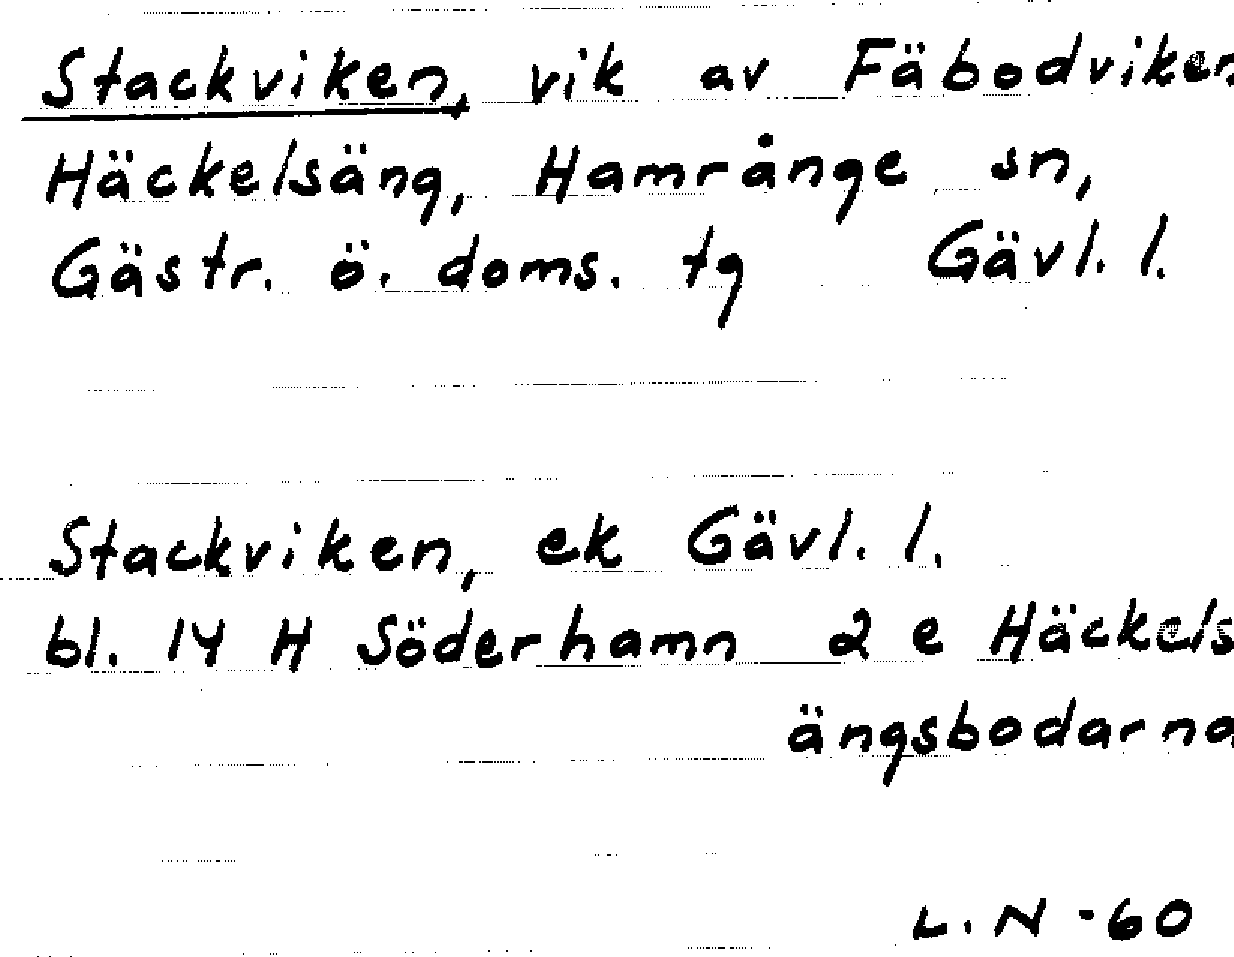 Stackviken, vik av Fäbodviken
Häckelsäng, Hamrånge sn,
Gästr. ö. doms. tg Gävl. l.
Stackviken, ek Gävl. l.
bl. 14 H Söderhamn 2 e Häckels
ängsbodarna
L. N -60